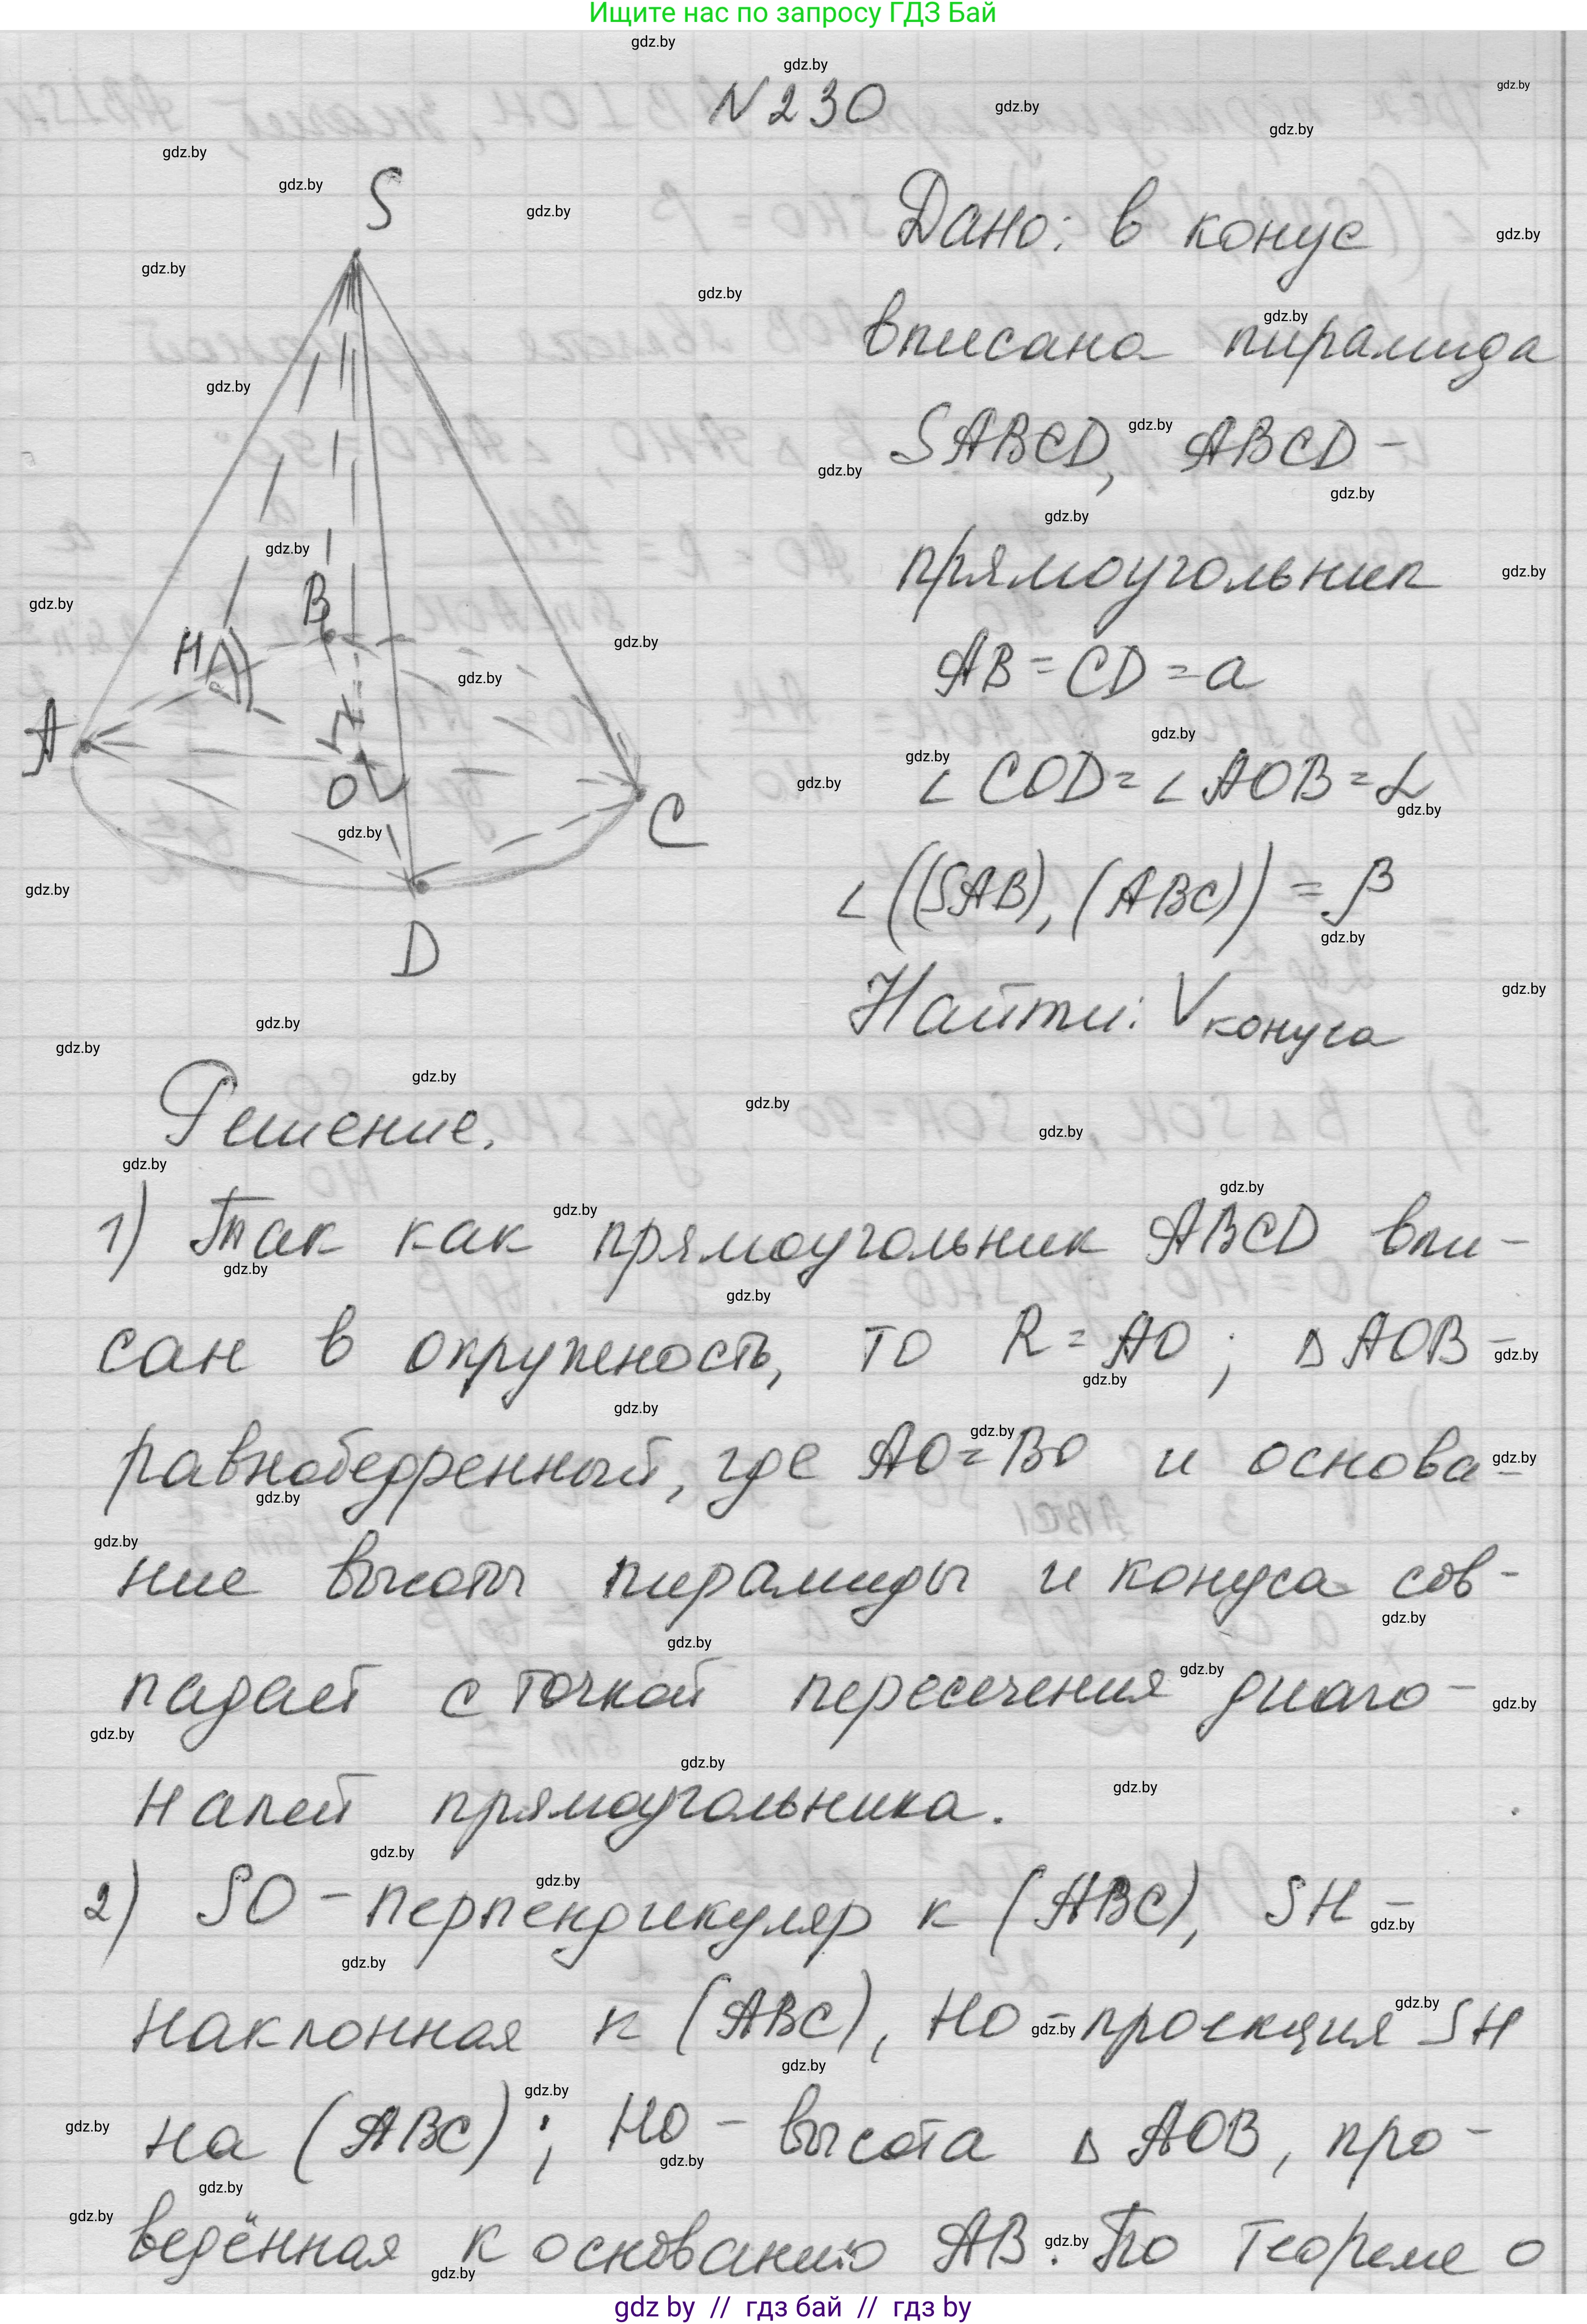 Ищите нас по запросу ГДЗ Бай
N 230
S
B
H
A
O
C
D
Дано: в конус
вписана пирамида
SABCD, ABCD –
прямоугольник
AB = CD = a
∠ COD = ∠ AOB = α
∠ ((SAB), (ABC)) = β
Найти: V конуса
Решение.
1) Так как прямоугольник ABCD впи-
сан в окружность, то R = AO ; Δ AOB –
равнобедренный, где AO = BO и основа-
ние высоты пирамиды и конуса сов-
падает с точкой пересечения диаго-
налей прямоугольника.
2) SO – перпендикуляр к (ABC), SH –
наклонная к (ABC), HO – проекция SH
на (ABC) ; HO – высота Δ AOB, про-
ведённая к основанию AB. По теореме о
gdz by // гдз бай // гдз by